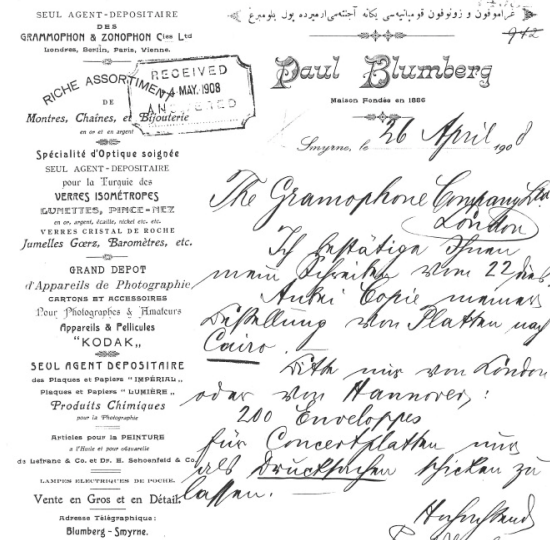 SEUL AGENT-DEPOSITAIRE
DES
GRAMMOPHON & ZONOPHON Cies Ltd
Londres, Berlin, Paris, Vienne.
RICHE ASSORTIMENT
DE
Montres, Chaînes, et Bijouterie
en or et en argent
Spécialité d'Optique soignée
SEUL AGENT-DEPOSITAIRE
pour la Turquie des
VERRES ISOMÉTROPES
LUNETTES, PINCE-NEZ
en or, argent, écaille, nickel etc. etc.
VERRES CRISTAL DE ROCHE
Jumelles Gœrz, Baromètres, etc.
GRAND DEPOT
d'Appareils de Photographie
CARTONS ET ACCESSOIRES
Pour Photographes & Amateurs
Appareils & Pellicules
"KODAK„
SEUL AGENT DEPOSITAIRE
des Plaques et Papiers "IMPÉRIAL„
Plaques et Papiers "LUMIÈRE„
Produits Chimiques
pour la Photographie
Articles pour la PEINTURE
a l'Huile et pour aquarelle
de Lefranc & Co. et Dr. F. Schoenfeld & Co.
LAMPES ELECTRIQUES DE POCHE.
Vente en Gros et en Détail.
Adresse Télégraphique:
Blumberg - Smyrne.
RECEIVED
4 MAY. 1908
ANSWERED
942
Paul Blumberg
Maison Fondée en 1886
Smyrne, le 26 April 1908
The Gramophone Company Ltd
London
Ich bestätige Ihnen
mein Schreiben vom 22 dies.
Anbei Copie meiner
Bestellung von Platten nach
Cairo.
Bitte mir von London
oder von Hannover,:
200 Enveloppes
für Concertplatten nur
als Drucksachen schicken zu
lassen.